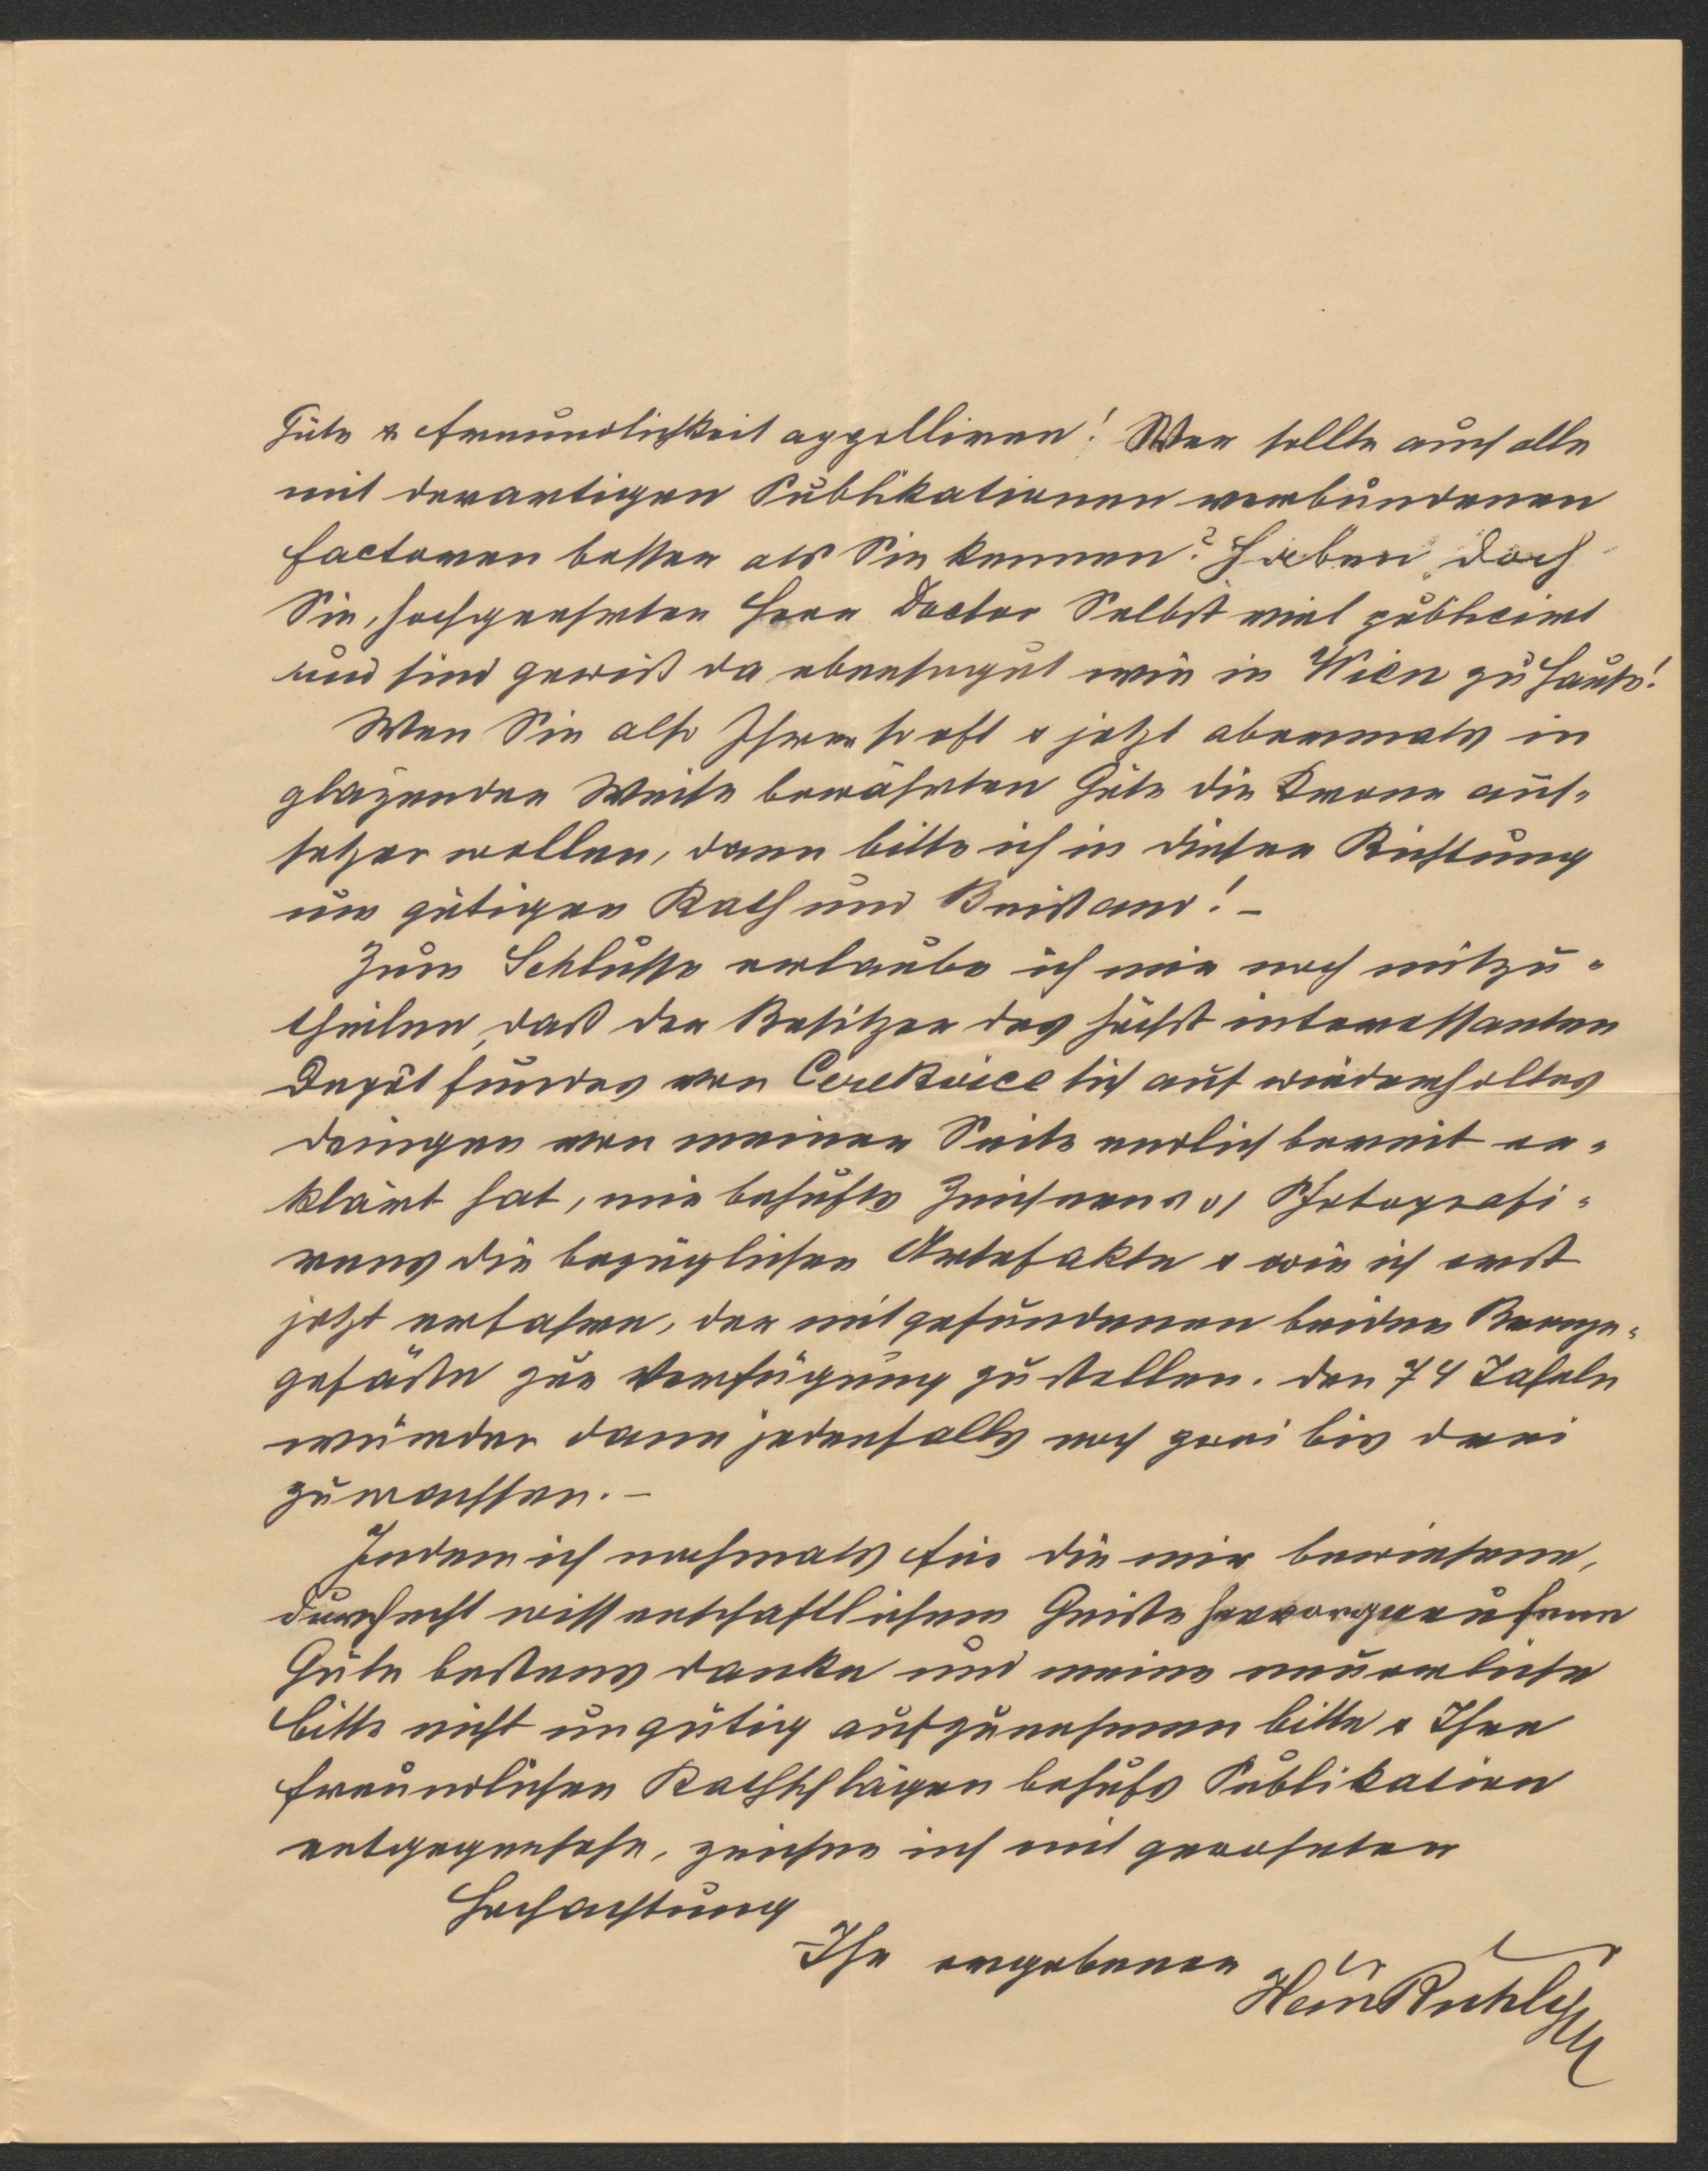 Güte & Freundlichkeit appelliren! Wer sollte auch alle
mit derartigen Publikationen verbundenen
Factoren besser als Sie kennen? Haben doch
Sie, hochgeehrter Herr Doctor Selbst viel publicirt
und sind gewiß da ebensogut wie in Wien zu Hause!
Wen Sie also Ihrer so oft & jetzt abermals in
glazender Weise bewährten Güte die Krone auf-
setzen wollen, dann bitte ich in dieser Richtung
um gütigen Rath und Beistand! –
Zum Schlusse erlaube ich mir noch mitzu-
theilen, daß der Besitzer des höchst interessanten
Depôt fundes von Cerekvice sich auf wiederholtes
dringen von meiner Seite endlich bereit er-
klärt hat, mir behufs Zeichnens & Photografi-
rens die bezüglichen Artefakte & wie ich erst
jetzt erfahre, der mitgefundenen beiden Bronze-
gefäße zur Verfügung zu stellen. Den 74 Tafeln
würden dann jedenfalls noch zwei bis drei
zuwachsen. –
Indem ich nochmals für die mir bewiesene,
durch echt wissenschaftlichem Geiste hervorgerufene
Güte bestens danke und meine neuerliche
bitte nicht ungütig aufzunehmen bitte & Ihren
freundlichen Rathschlägen behufs Publikation
entgegensehe, zeichne ich mit geehrter
Hochachtung
Ihr ergebener